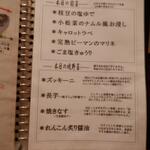 本日の前菜
＊枝豆の塩ゆで
＊小松菜のナムル風お浸し
＊キャロットラペ
＊完熟ピーマンのマリネ
＊ごま塩きゅうり
本日の焼野菜
＊ズッキーニ
＊長芋
＊焼きなす
＊れんこん炙り醤油